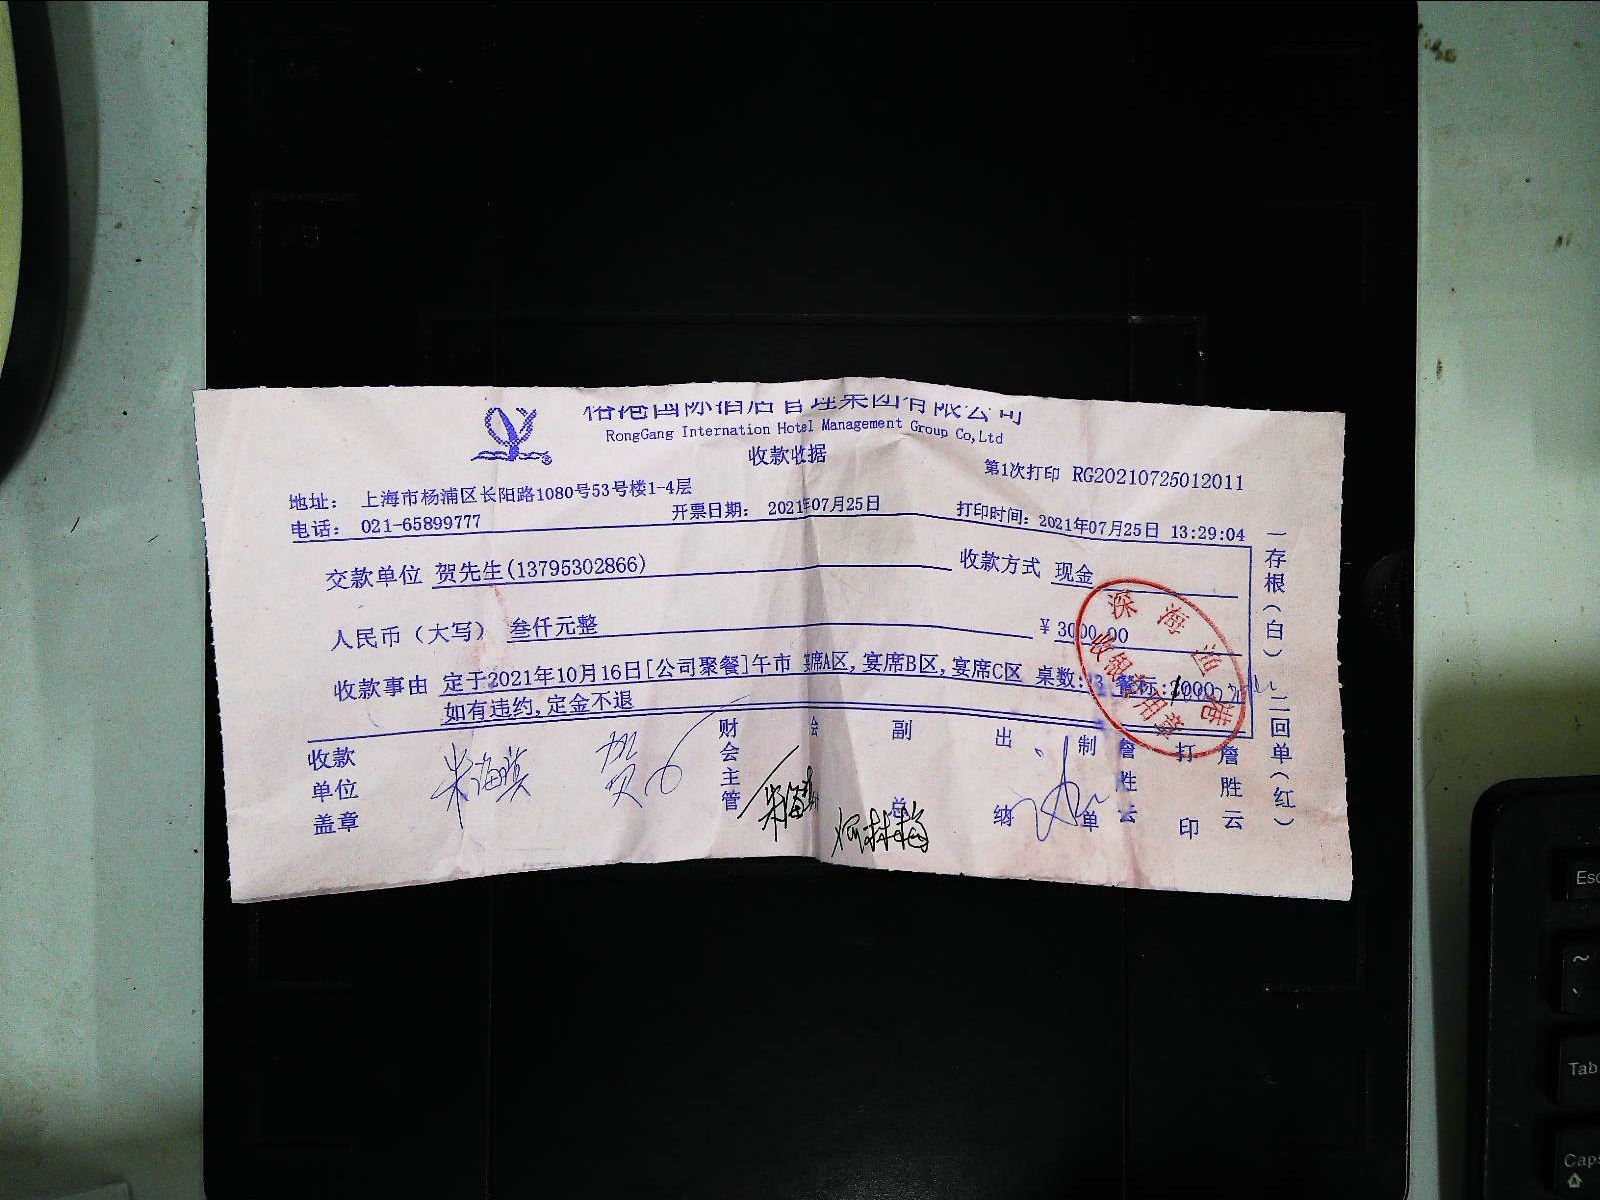 榕港国际酒店管理集团有限公司
RongGang Internation Hotel Management Group Co,Ltd
收款收据
第1次打印 RG20210725012011
地址： 上海市杨浦区长阳路1080号53号楼1-4层
电话： 021-65899777 开票日期： 2021年07月25日 打印时间：2021年07月25日 13:29:04
交款单位 贺先生(13795302866) 收款方式 现金
人民币（大写） 叁仟元整 ￥3000.00
收款事由 定于2021年10月16日[公司聚餐]午市 宴席A区,宴席B区,宴席C区 桌数:
如有违约,定金不退
收款单位盖章
财会主管
会
副总
出纳
制单
詹胜云
打印
詹胜云
一存根(白)二回单(红)
深海渔港
收银专用章
贺
Esc
~
Tab
Caps